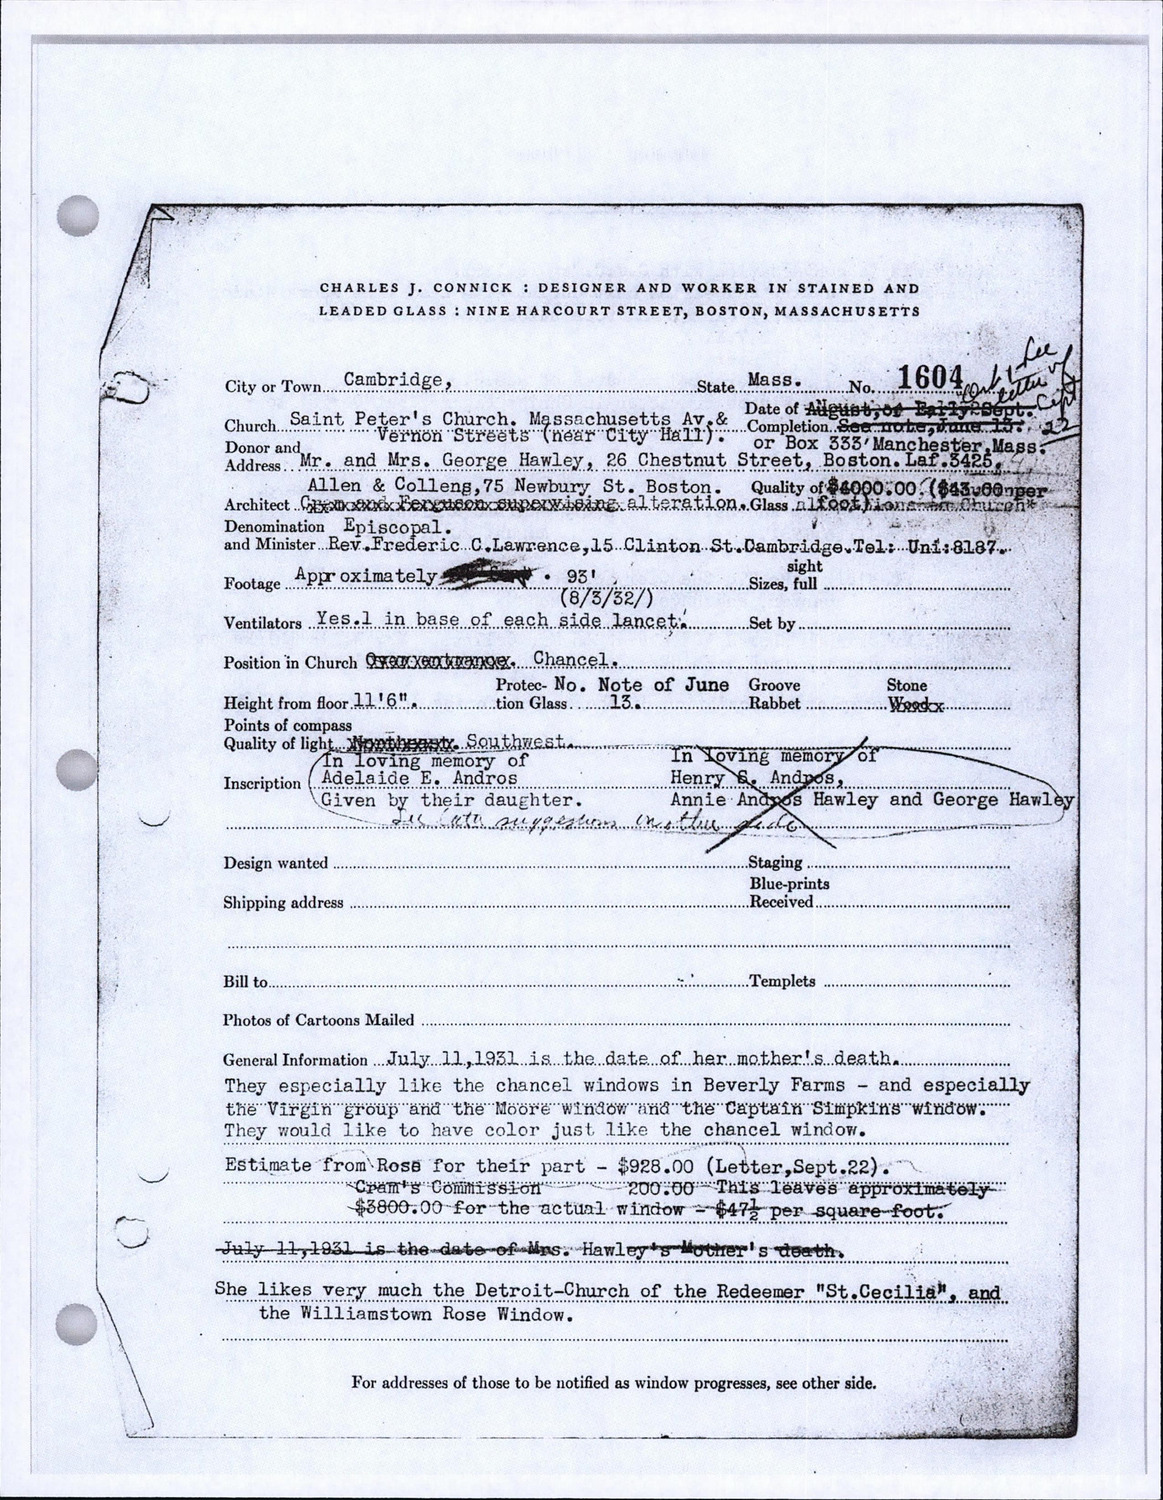 CHARLES J. CONNICK : DESIGNER AND WORKER IN STAINED AND
LEADED GLASS : NINE HARCOURT STREET, BOSTON, MASSACHUSETTS
City or Town Cambridge, State Mass. No. 1604
See letter of Sept 22
Church Saint Peter's Church. Massachusetts Av.& Date of August, or Early Sept.
Vernon Streets (near City Hall). Completion See note, June 13.
Donor and or Box 333 Manchester, Mass.
Address Mr. and Mrs. George Hawley, 26 Chestnut Street, Boston. Laf.3425.
Allen & Collens,75 Newbury St. Boston. Quality of $4000.00 ($43.00 per
Architect Cram and Ferguson supervising alteration. Glass foot)
Denomination Episcopal.
and Minister Rev.Frederic C.Lawrence,15 Clinton St.Cambridge.Tel: Uni:8187.
Footage Approximately 93' Sizes, sight full
(8/3/32/)
Ventilators Yes.1 in base of each side lancet. Set by
Position in Church Over entrance. Chancel.
Height from floor 11'6". Protec- No. Note of June Groove Stone
tion Glass 13. Rabbet Wood
Points of compass
Quality of light Northeast. Southwest.
In loving memory of In loving memory of
Inscription Adelaide E. Andros Henry S. Andros,
Given by their daughter. Annie Andros Hawley and George Hawley
See later suggestions on other side
Design wanted Staging
Blue-prints
Shipping address Received
Bill to Templets
Photos of Cartoons Mailed
General Information July 11,1931 is the date of her mother's death.
They especially like the chancel windows in Beverly Farms - and especially
the Virgin group and the Moore window and the Captain Simpkins window.
They would like to have color just like the chancel window.
Estimate from Ross for their part - $928.00 (Letter,Sept.22).
Cram's Commission 200.00 This leaves approximately
$3800.00 for the actual window - $47½ per square foot.
July 11,1931 is the date of Mrs. Hawley's Mother's death.
She likes very much the Detroit-Church of the Redeemer "St.Cecilia", and
the Williamstown Rose Window.
For addresses of those to be notified as window progresses, see other side.